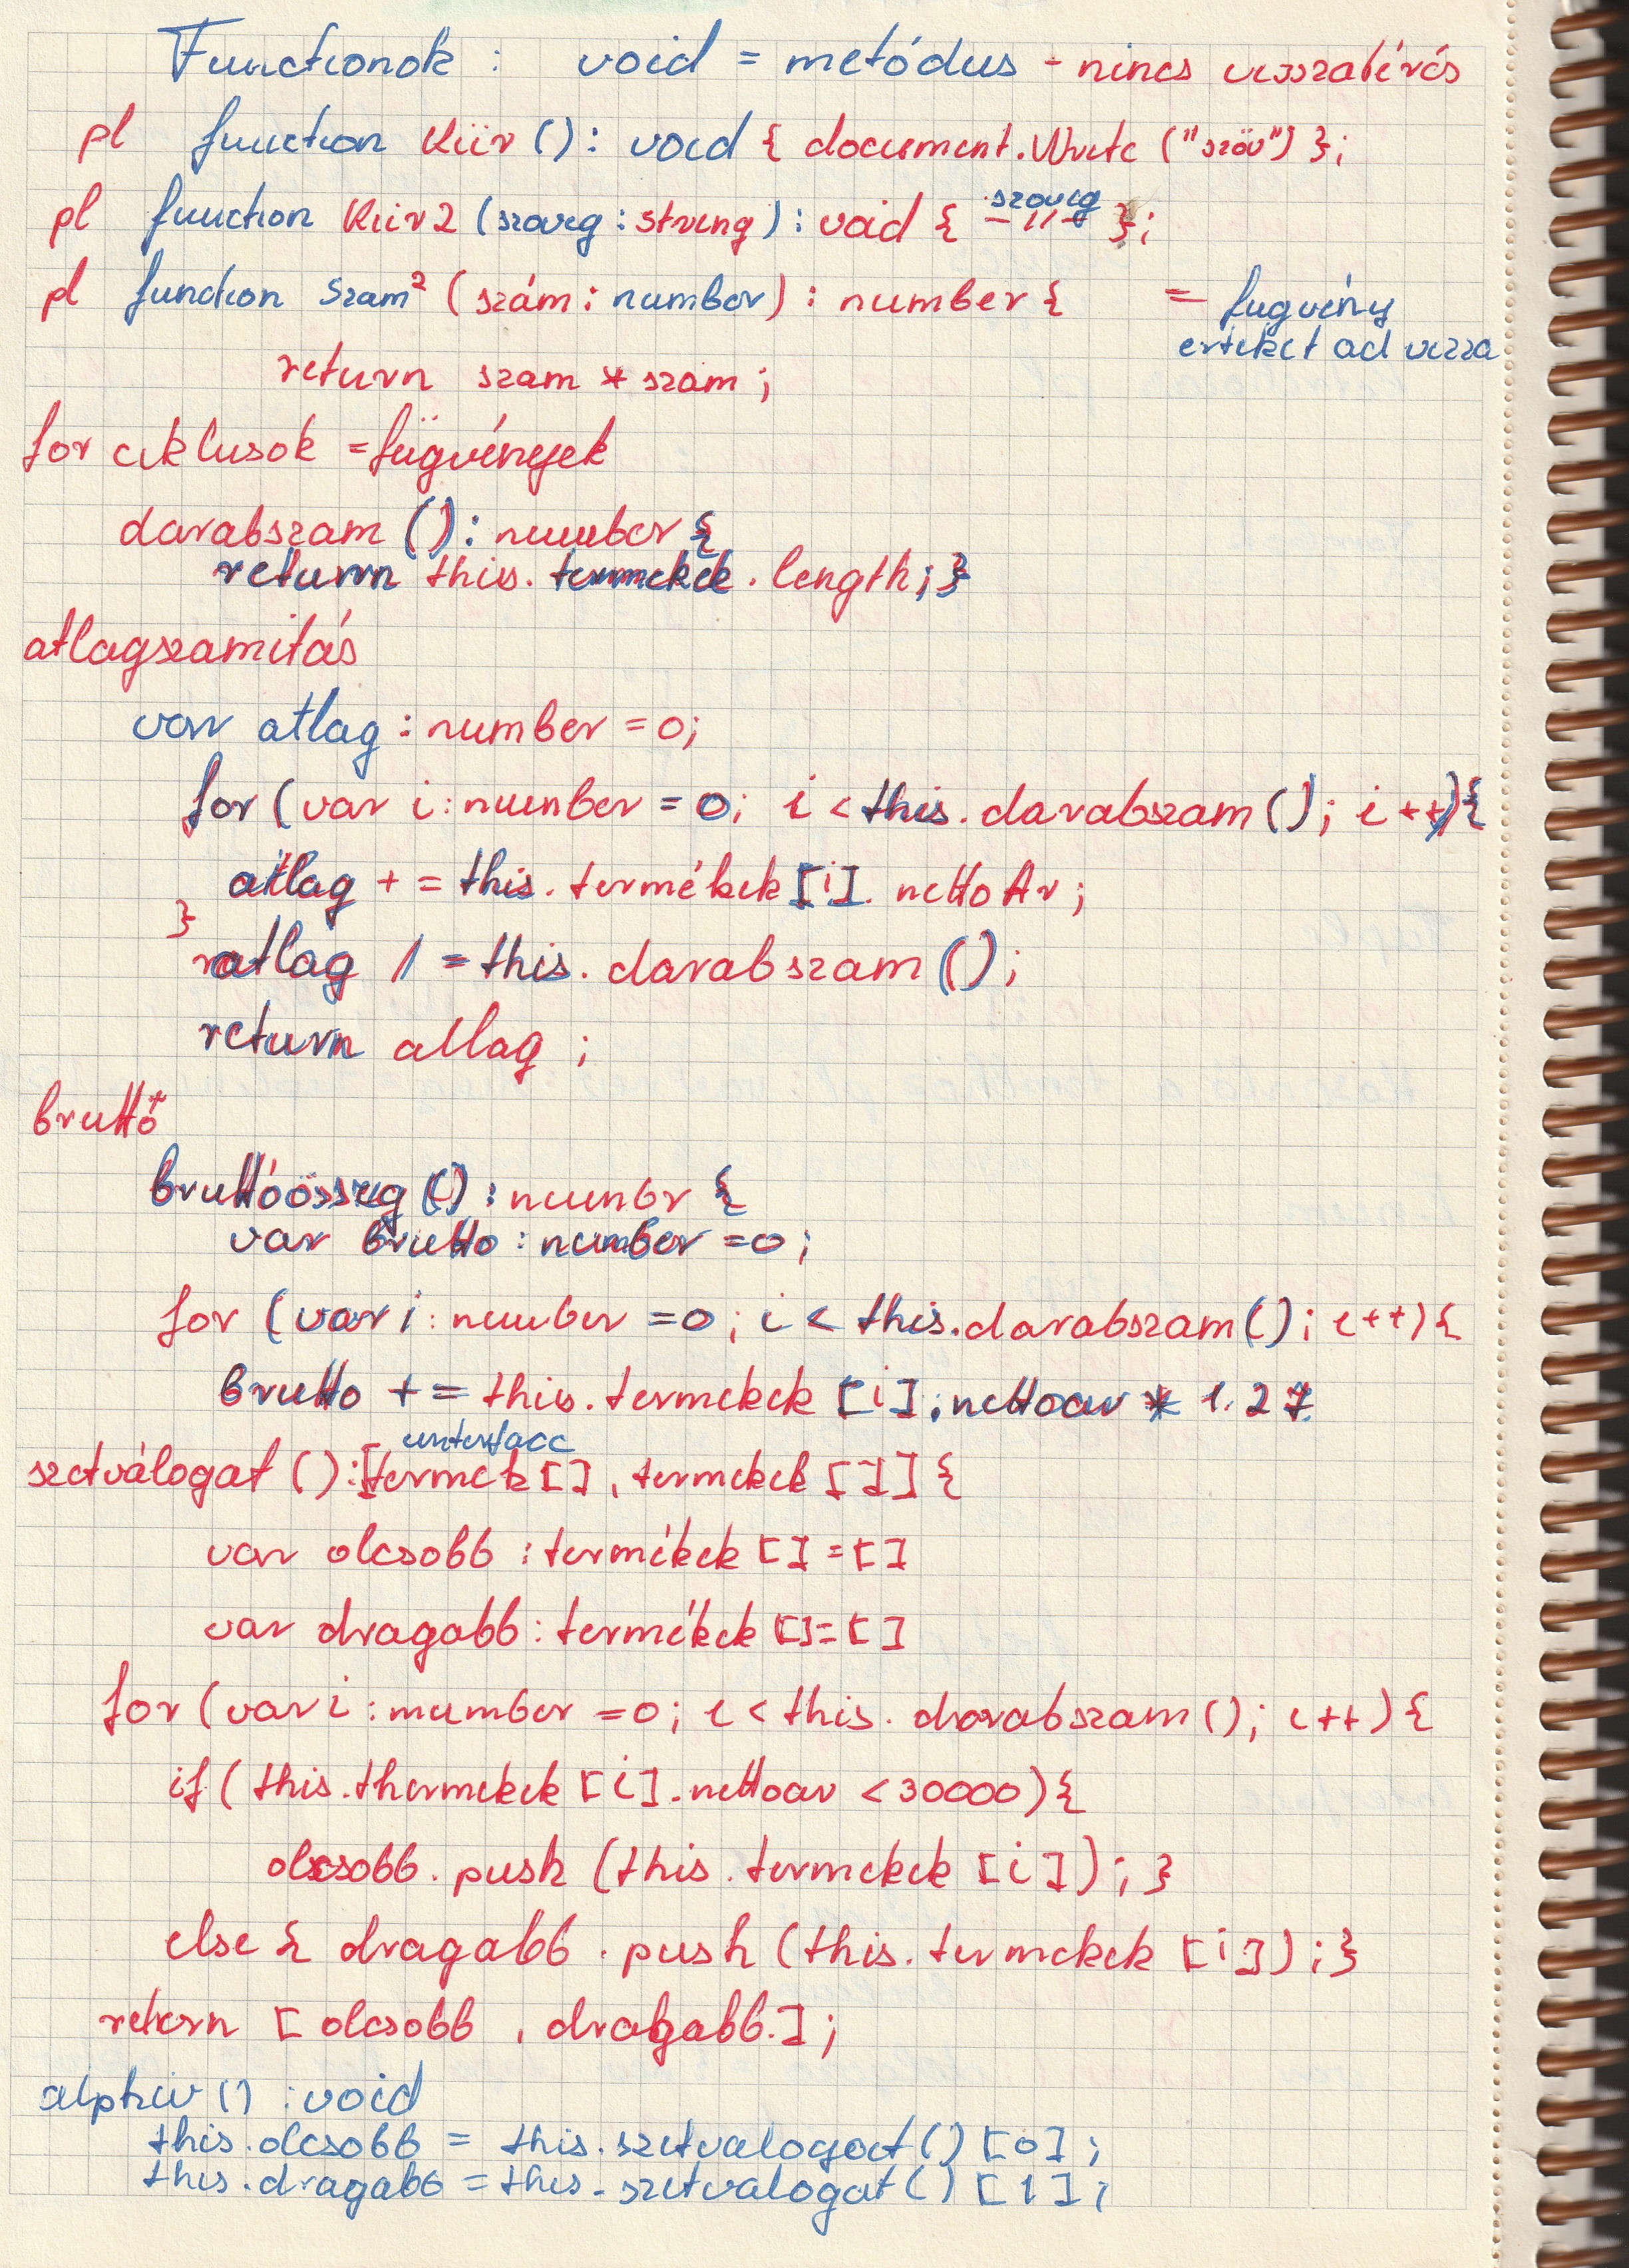 Functionok : void = metódus - nincs visszatérés
pl function Kiir () : void { document.Write ("szöv") };
pl function Kiir2 (szoveg : string) : void { -"- szoveg };
pl function Szam² (szám : number) : number { = fugvény
erteket ad vissza
return szam * szam ;
for ciklusok = fügvények
darabszam () : number {
return this. termekek . length ; }
atlagszamitás
var atlag : number = 0;
for ( var i : number = 0; i < this. darabszam () ; i ++ ) {
atlag + = this. termékek [i]. nettoAr ;
}
atlag / = this. darabszam () ;
return atlag ;
bruttó
bruttóösszeg () : numbr {
var brutto : number = 0 ;
for ( var i : number = 0 ; i < this. darabszam () ; i ++ ) {
brutto + = this. termekek [i] . nettoar * 1.27
interface
szétválogat () : [termek [] , termekek [] ] {
var olcsobb : termékek [] = []
var dragabb : termékek [] = []
for ( var i : number = 0 ; i < this. darabszam () ; i ++ ) {
if ( this. thermekek [i] . nettoar < 30000 ) {
olcsobb . push ( this. termekek [i] ) ; }
else { dragabb . push ( this. termekek [i] ) ; }
return [ olcsobb , dragabb. ] ;
() : void
this. olcsobb = this. szetvalogat () [0] ;
this. dragabb = this. szetvalogat () [1] ;